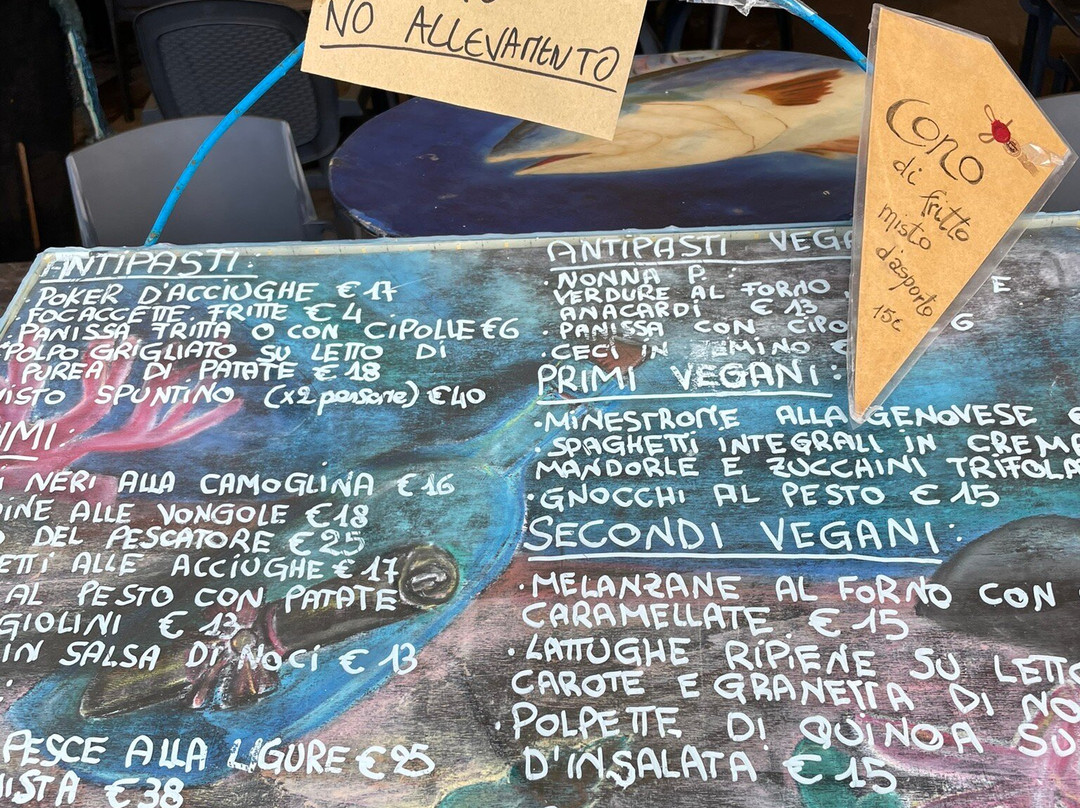 NO ALLEVAMENTO
Cono
di fritto
misto
d'asporto
15€
ANTIPASTI:
· POKER D'ACCIUGHE € 17
· FOCACCETTE FRITTE € 4
· PANISSA FRITTA O CON CIPOLLE €6
POLPO GRIGLIATO SU LETTO DI
PUREA DI PATATE € 18
MISTO SPUNTINO (x2 persone) €40
NERI ALLA CAMOGLINA € 16
ALLE VONGOLE € 18
DEL PESCATORE € 25
ALLE ACCIUGHE € 17
AL PESTO CON PATATE
€ 13
IN SALSA DI NOCI € 13
PESCE ALLA LIGURE € 25
€38
ANTIPASTI
· NONNA P.
VERDURE AL FORNO
ANACARDI € 13
· PANISSA CON
· CECI IN ZEMINO €
PRIMI VEGANI:
· MINESTRONE ALLA GENOVESE €
· SPAGHETTI INTEGRALI IN CREMA
MANDORLE E ZUCCHINI
· GNOCCHI AL PESTO € 15
SECONDI VEGANI:
· MELANZANE AL FORNO CON
CARAMELLATE. € 15
· LATTUGHE RIPIENE SU LETTO
CAROTE E GRANETTA DI
· POLPETTE DI QUINOA SU
D'INSALATA € 15